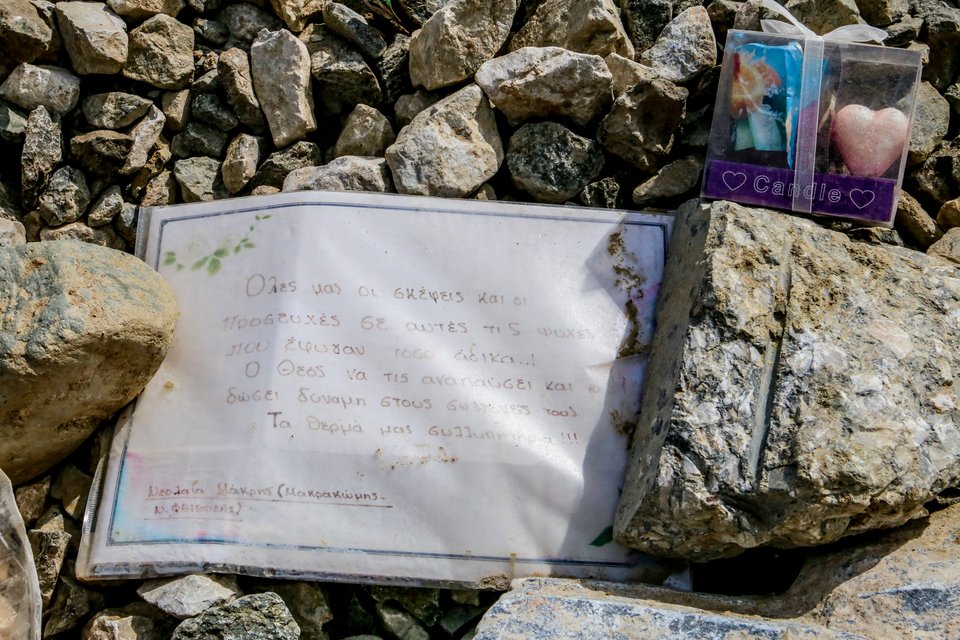 Candle
Ολες μας οι σκέψεις και οι
προσευχές σε αυτές τις ψυχές
που έφυγαν τόσο άδικα..!
Ο Θεός να τις αναπαύσει και
δώσει δύναμη στους συγγενείς τους
Τα θερμά μας συλλυπητήρια!!!
Νεολαία Μάκρης (Μακρακώμης-
Ν. Φθιώτιδας)